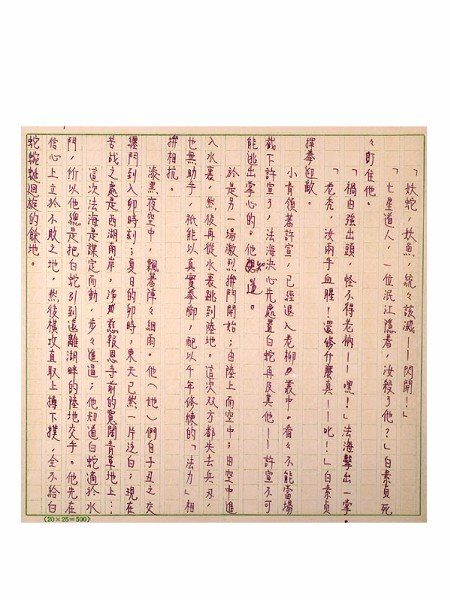 「妖蛇,妖魚,統々該滅——閃開!」
「七星道人,一位岷江隱者,汝殺了他?」白素貞死
々盯住他。
「禍由強出頭,怪不得老衲——嘿!」法海擊出一掌。
「老禿,汝兩手血腥!還修什麼真!——叱!」白素貞
揮拳迎敵。
小青傍著許宣,已經退入老柳叢中。看々不能當場
截下許宣了,法海決心先處置白蛇再及其他——許宣不可
能逃出掌心的。他知道。
於是另一場激烈拚鬥開始;由陸上而空中,由空中進
入水裏,然後再從水裏跳到陸地。這次双方都失去兵刃,
也無助手,祇能以真實拳腳,配以千年修練的「法力」相
拚相抗。
漆黑夜空中,飄著陣々細雨。他(她)們自子丑之交
纏鬥到入卯時刻;夏日的卯時,東天已然一片泛白;現在
苦戰之處是西湖南岸,淨慈報恩寺前的寬闊青草地上…
這次法海是謀定而動,步々進逼;他知道白蛇適於水
鬥,所以他總是把白蛇引到遠離湖畔的陸地交手。他先在
信心上立於不敗之地,然後橫攻直取上搏下撲,全不給白
蛇蜿蜒迴旋的餘地。
(20×25=500)